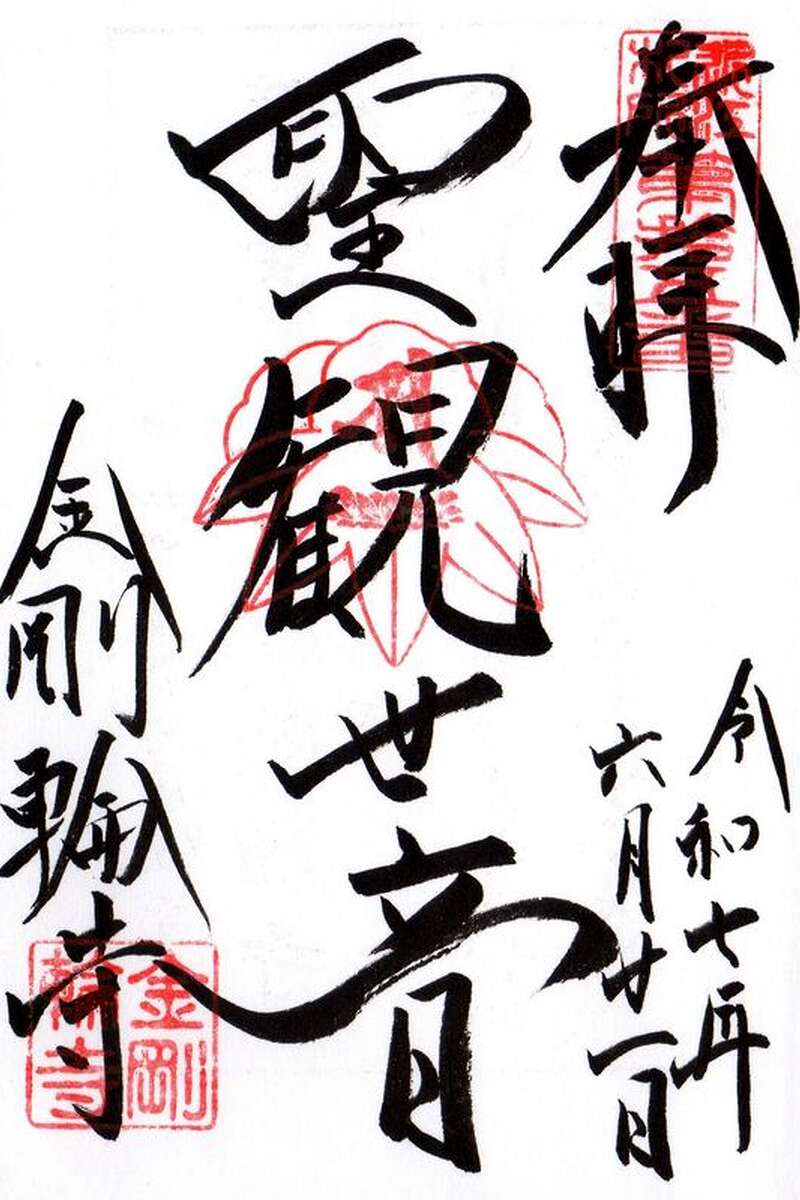 奉拝
令和七年
六月廿一日
聖観世音
金剛輪寺
金剛
輪寺